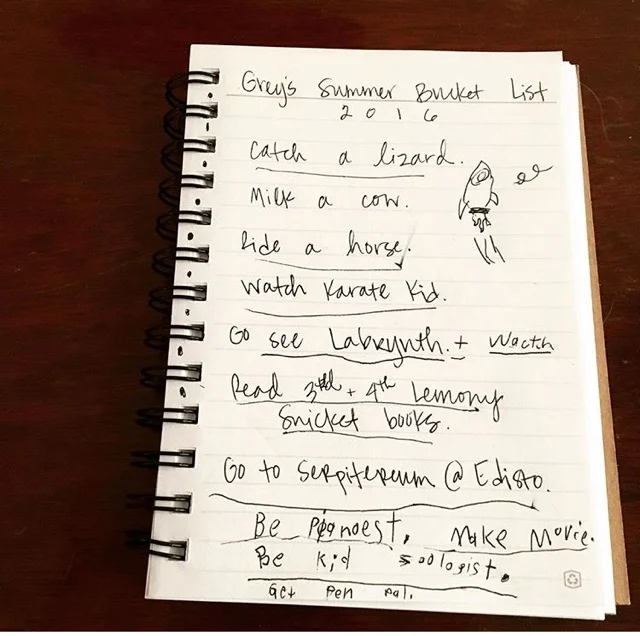 Grey's Summer Bucket List
2016
Catch a lizard.
Milk a cow.
Ride a horse.
Watch Karate Kid.
Go see Labrynth. + Wacth
Read 3rd + 4th Lemony
Snicket books.
Go to Serpitereum @ Edisto.
Be pianoest. Make Movie.
Be kid zoologist.
Get pen pal.